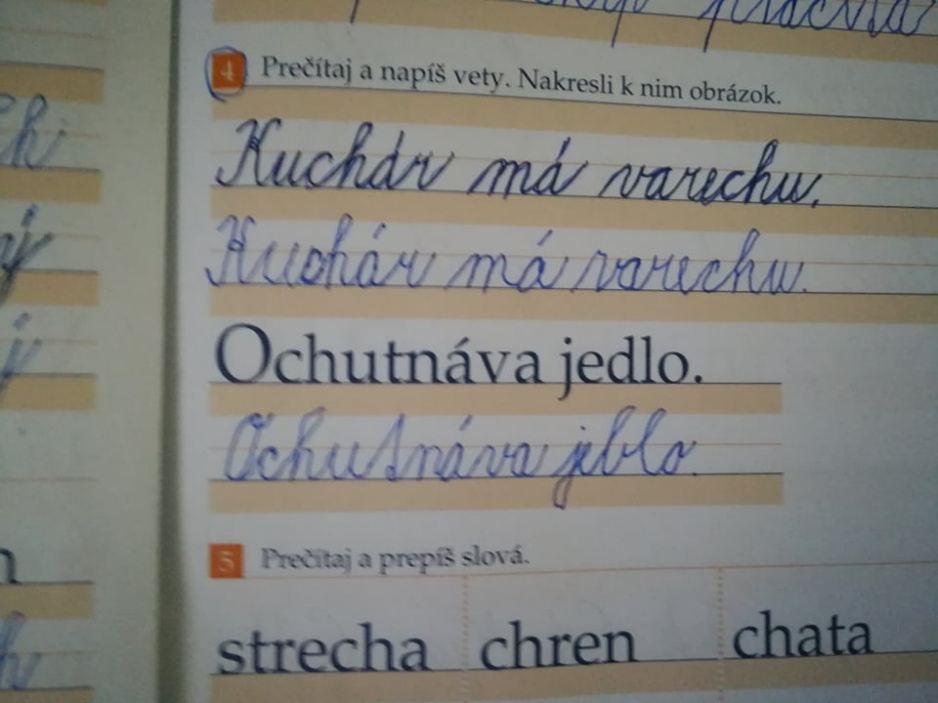 4 Prečítaj a napíš vety. Nakresli k nim obrázok.
Kuchár má varechu.
Kuchár má varechu.
Ochutnáva jedlo.
Ochutnáva jblo.
5 Prečítaj a prepíš slová.
strecha chren chata